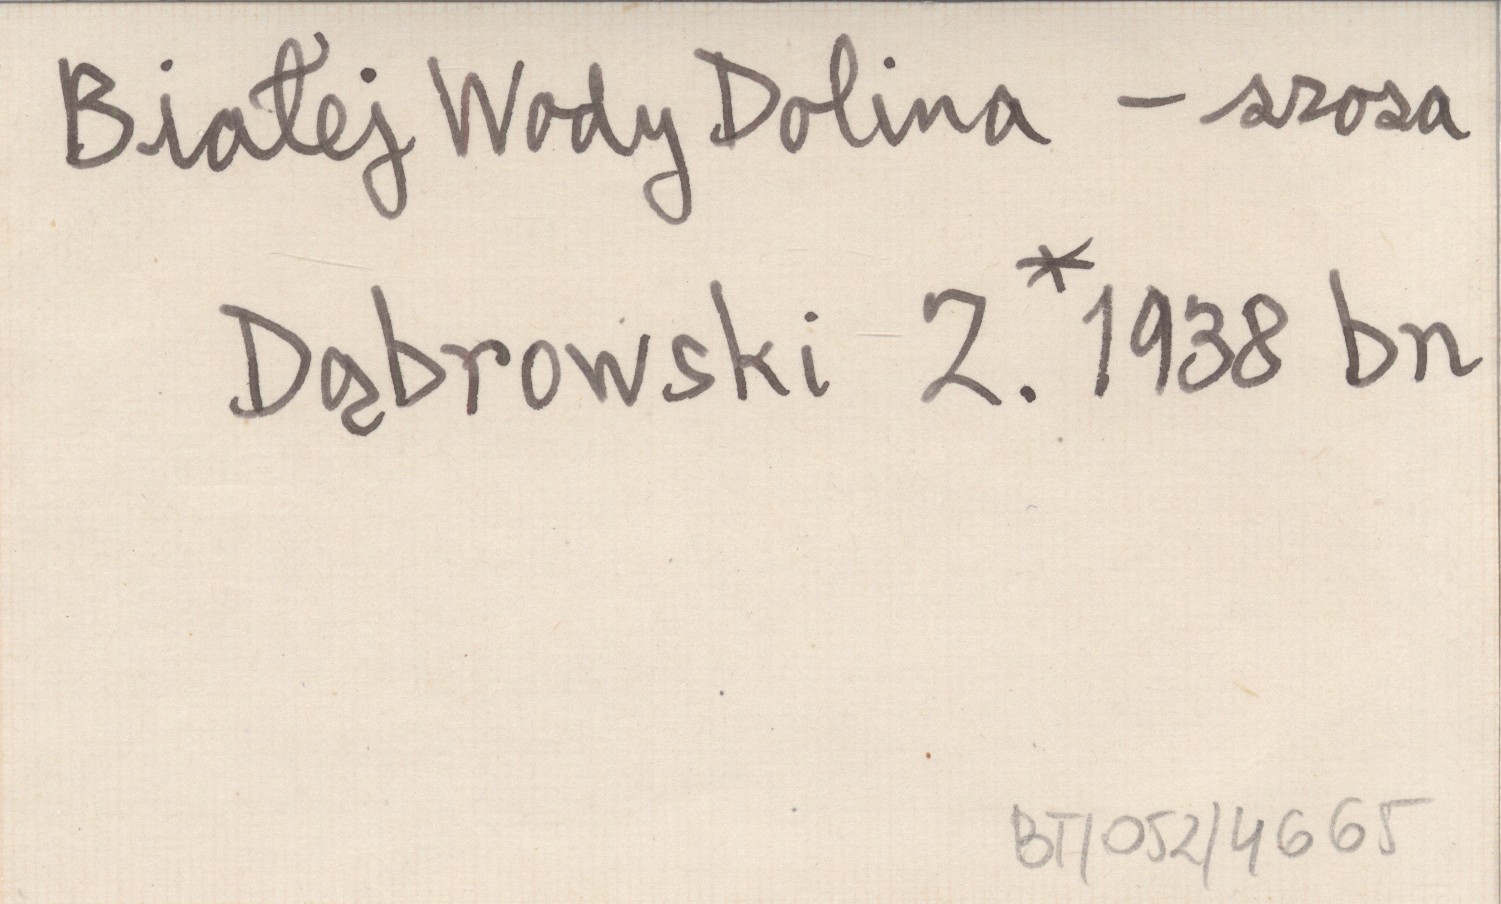 Białej Wody Dolina – szosa
Dąbrowski Z.* 1938 bn
BT/052/4665